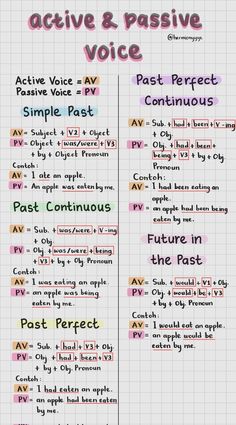 active & passive
voice
Active Voice = AV
Passive Voice = PV
Simple Past
AV = Subject + V2 + Object
PV = Object + was/were + V3
+ by + Object Pronoun
Contoh:
AV = I ate an apple.
PV = An apple was eaten by me.
Past Continuous
AV = Sub. + was/were + V-ing
+ Obj.
PV = Obj. + was/were + being
+ V3 + by + Obj. Pronoun
Contoh:
AV = I was eating an apple.
PV = an apple was being
eaten by me.
Past Perfect
AV = Sub. + had + V3 + Obj.
PV = Obj. + had + been + V3
+ by + Obj. Pronoun
Contoh:
AV = I had eaten an apple.
PV = an apple had been eaten
by me.
Past Perfect
Continuous
AV = Sub. + had + been + V-ing
+ Obj.
PV = Obj. + had + been +
being + V3 + by + Obj. Pronoun
Contoh:
AV = I had been eating an
apple.
PV = an apple had been being
eaten by me.
Future in
the Past
AV = Sub. + would + V1 + Obj.
PV = Obj. + would + be + V3
+ by + Obj. Pronoun
Contoh:
AV = I would eat an apple.
PV = an apple would be
eaten by me.